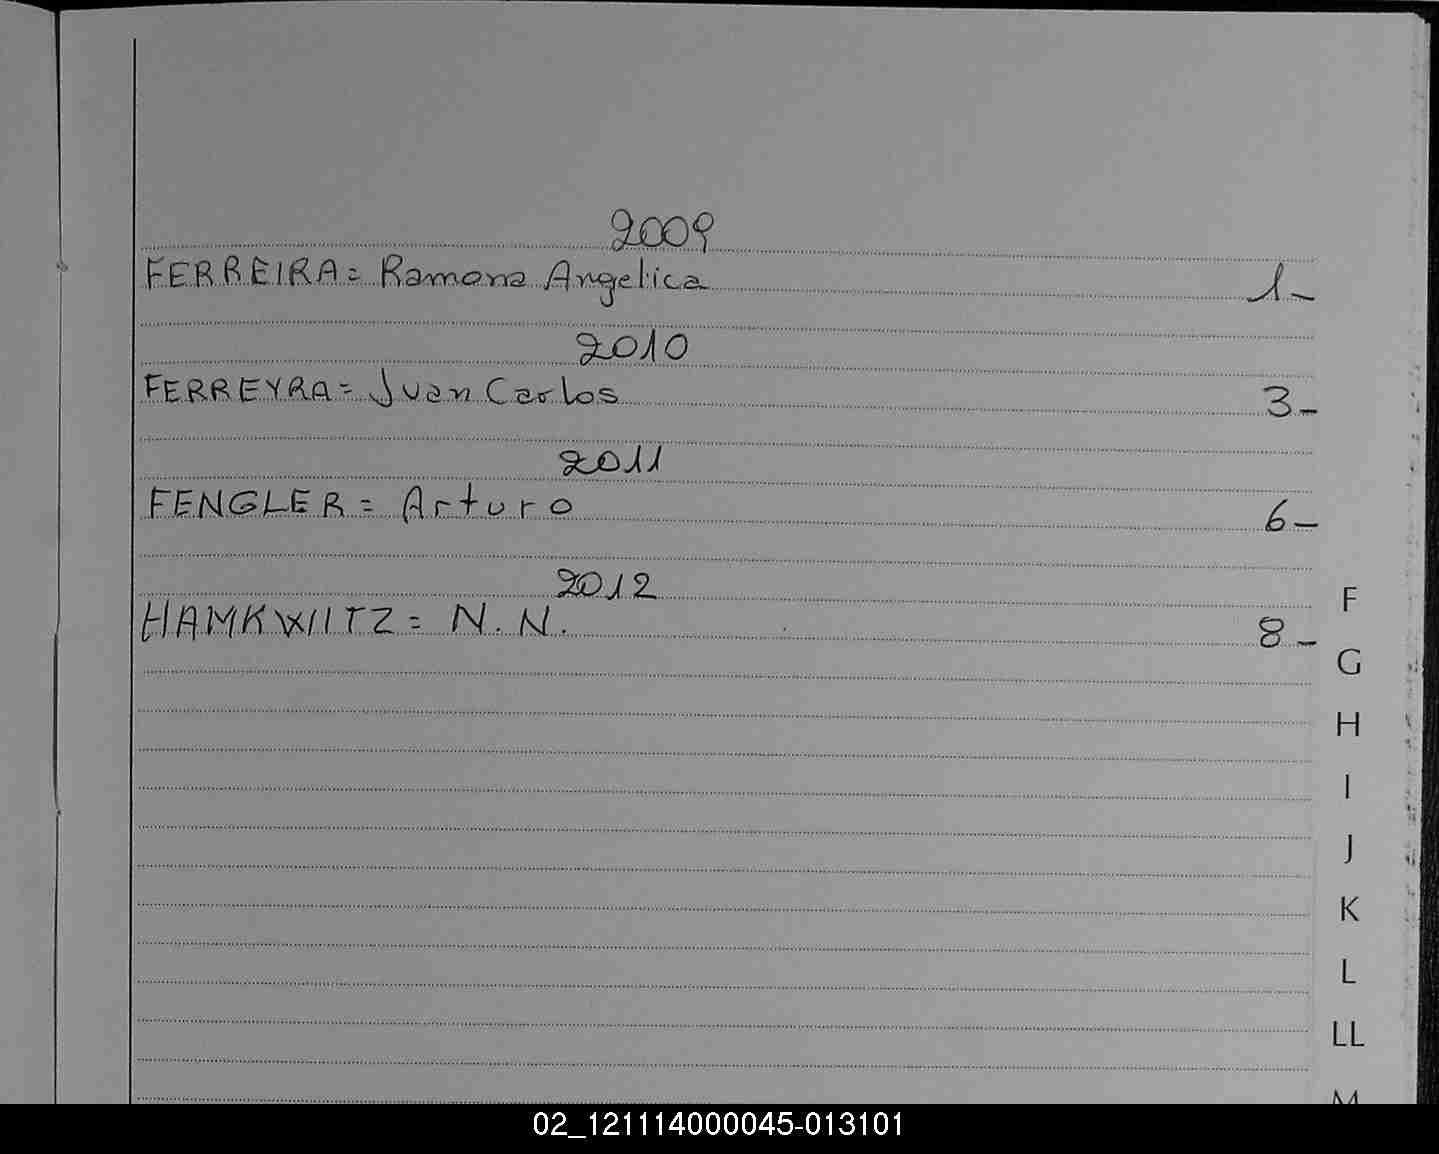 2009
FERREIRA= Ramona Angelica 1-
2010
FERREYRA= Juan Carlos 3-
2011
FENGLER= Arturo 6-
2012
HAMKWIITZ= N. N. 8-
F
G
H
I
J
K
L
LL
M
02_121114000045-013101